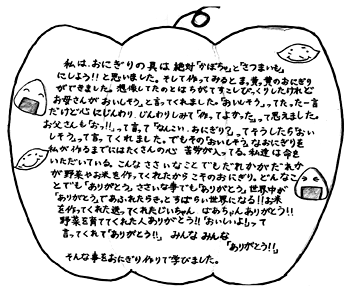 私は、おにぎりの具は絶対「かぼちゃ」と「さつまいも」
にしよう!!と思いました。そして作ってみるとま、黄、黄のおにぎり
ができました。想像してたのとはちがてすこしびっくりしたけれど
お母さんが「おいしそう」と言ってくれました。「おいそう」ってたった一言
だけど心にじんわり、じんわりしみて「作ってよかった」って思えました。
お父さんも「おっ!!」って言って「なんこい、おにぎり?」ってそうしたら「おい
しそう」って言ってくれました。でもその「おいしそう」なおにぎりを
私が作るまでにはたくさんの心、苦労が入ってる。私達は命を
いただいている。こんなささいなことでも「だれかがだれか
が野菜やお米を作ってくれたからこそのおにぎり。どんなこ
とでも「ありがとう」。ささいな事でも「ありがとう」世界中が
「ありがとう」であふれたらきっとすばらしい世界になる!!お米
を作ってくれた送ってくれたじいちゃん ばあちゃんありがとう!!
野菜を育ててくれた人ありがとう!!「おいしいよ!」って
言ってくれて「ありがとう!!」 みんな みんな
「ありがとう!!」
そんな事をおにぎり作りで学びました。